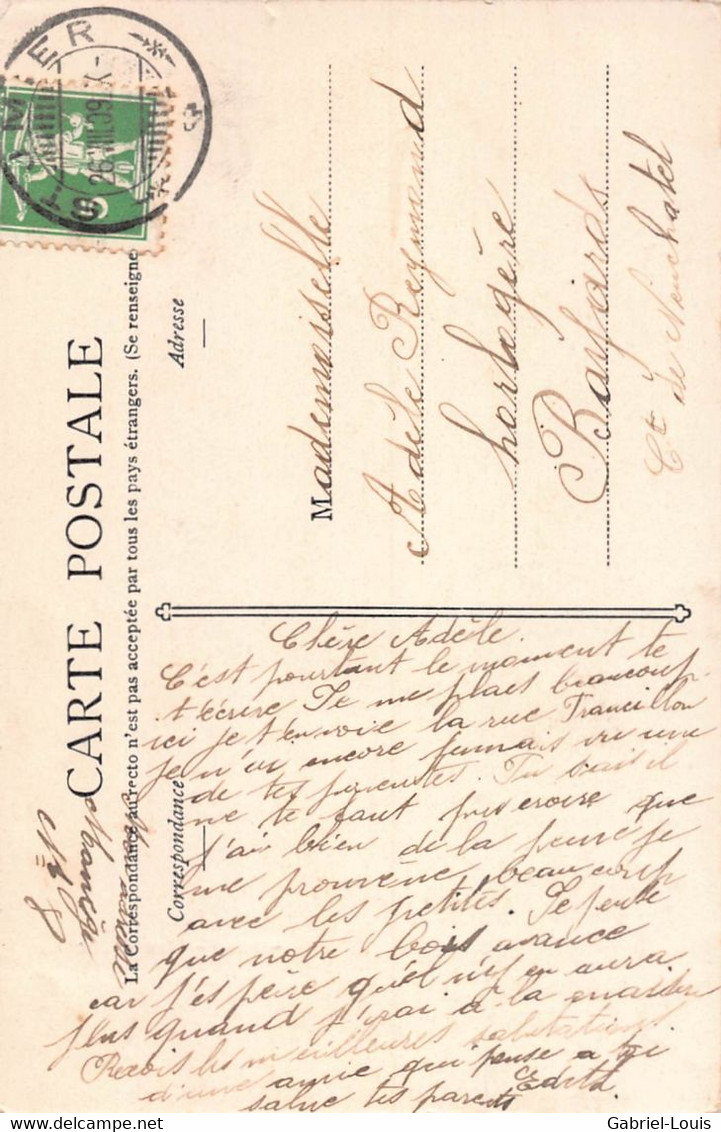 ST. IMIER
26.VIII.09
CARTE POSTALE
La Correspondance au recto n'est pas acceptée par tous les pays étrangers. (Se renseigne
Correspondance
Adresse
Mademoiselle
Adèle Reymond
horlogère
Bayards
Ct de Neuchatel
Chère Adèle.
C'est pourtant le moment de
t'écrire Je me plais beaucoup
ici je t'envoie la rue Francillon
je n'ai encore jamais vu une
de tes parentes. Tu sais il
ne te faut pas croire que
j'ai bien de la peine je
me promène beaucoup
avec les petites. Je pense
que notre bois avance
car j'espère qu'el n'y en aura
plus quand j'irai à la maison
Reçois les meilleures salutations
d'une amie qui pense a toi
Edith
salue tes parents
No 8
Gabriel-Louis